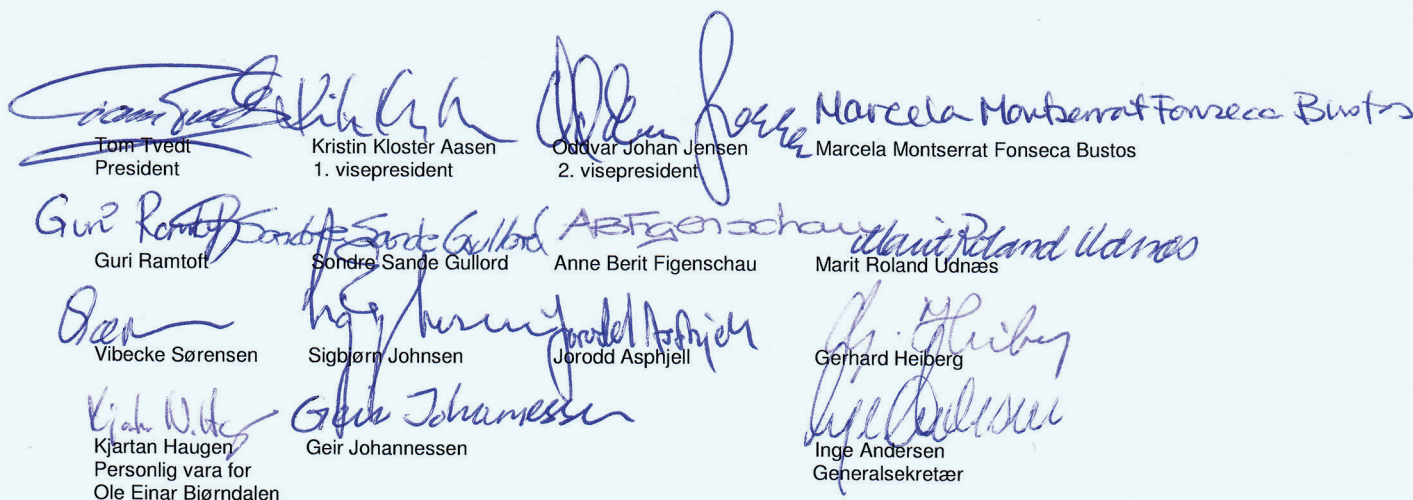 Marcela Montserrat Fonseca Bustos
Tom Tvedt
President
Kristin Kloster Aasen
1. visepresident
Oddvar Johan Jensen
2. visepresident
Marcela Montserrat Fonseca Bustos
Guri Ramtoft Sondre Sande Gullord ABFigenschau Marit Roland Udnæs
Guri Ramtoft
Sondre Sande Gullord
Anne Berit Figenschau
Marit Roland Udnæs
Jorodd Asphjell
Vibecke Sørensen
Sigbjørn Johnsen
Jorodd Asphjell
Gerhard Heiberg
Geir Johannessen
Kjartan Haugen
Personlig vara for
Ole Einar Bjørndalen
Geir Johannessen
Inge Andersen
Generalsekretær